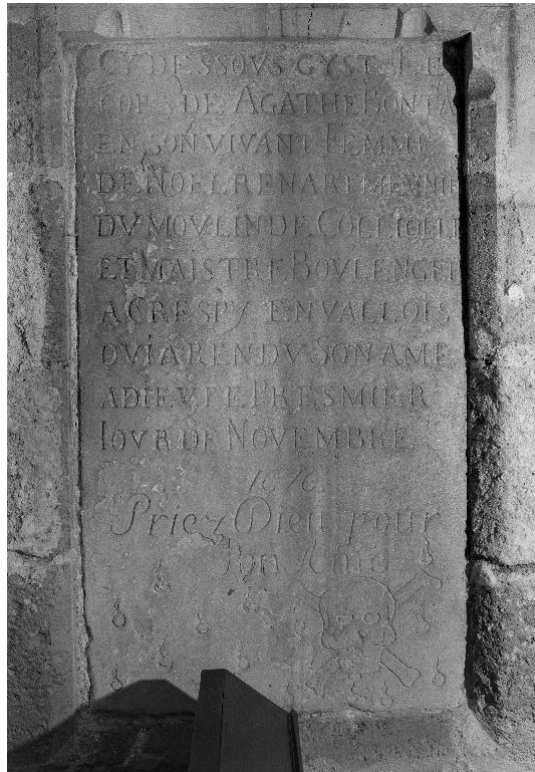 CY DESSOVS GYST LE
CORS DE AGATHE BONTA
EN SON VIVANT FEMME
DE NOEL RENARE MEVNIE
DV MOVLIN DE COLLIOLLE
ET MAISTRE BOVLENGER
A CRESPY EN VALLOIS
QVI A RENDV SON AME
A DIEV LE PRESMIER
IOVR DE NOVEMBRE
1676
Priez Dieu pour
son Ame